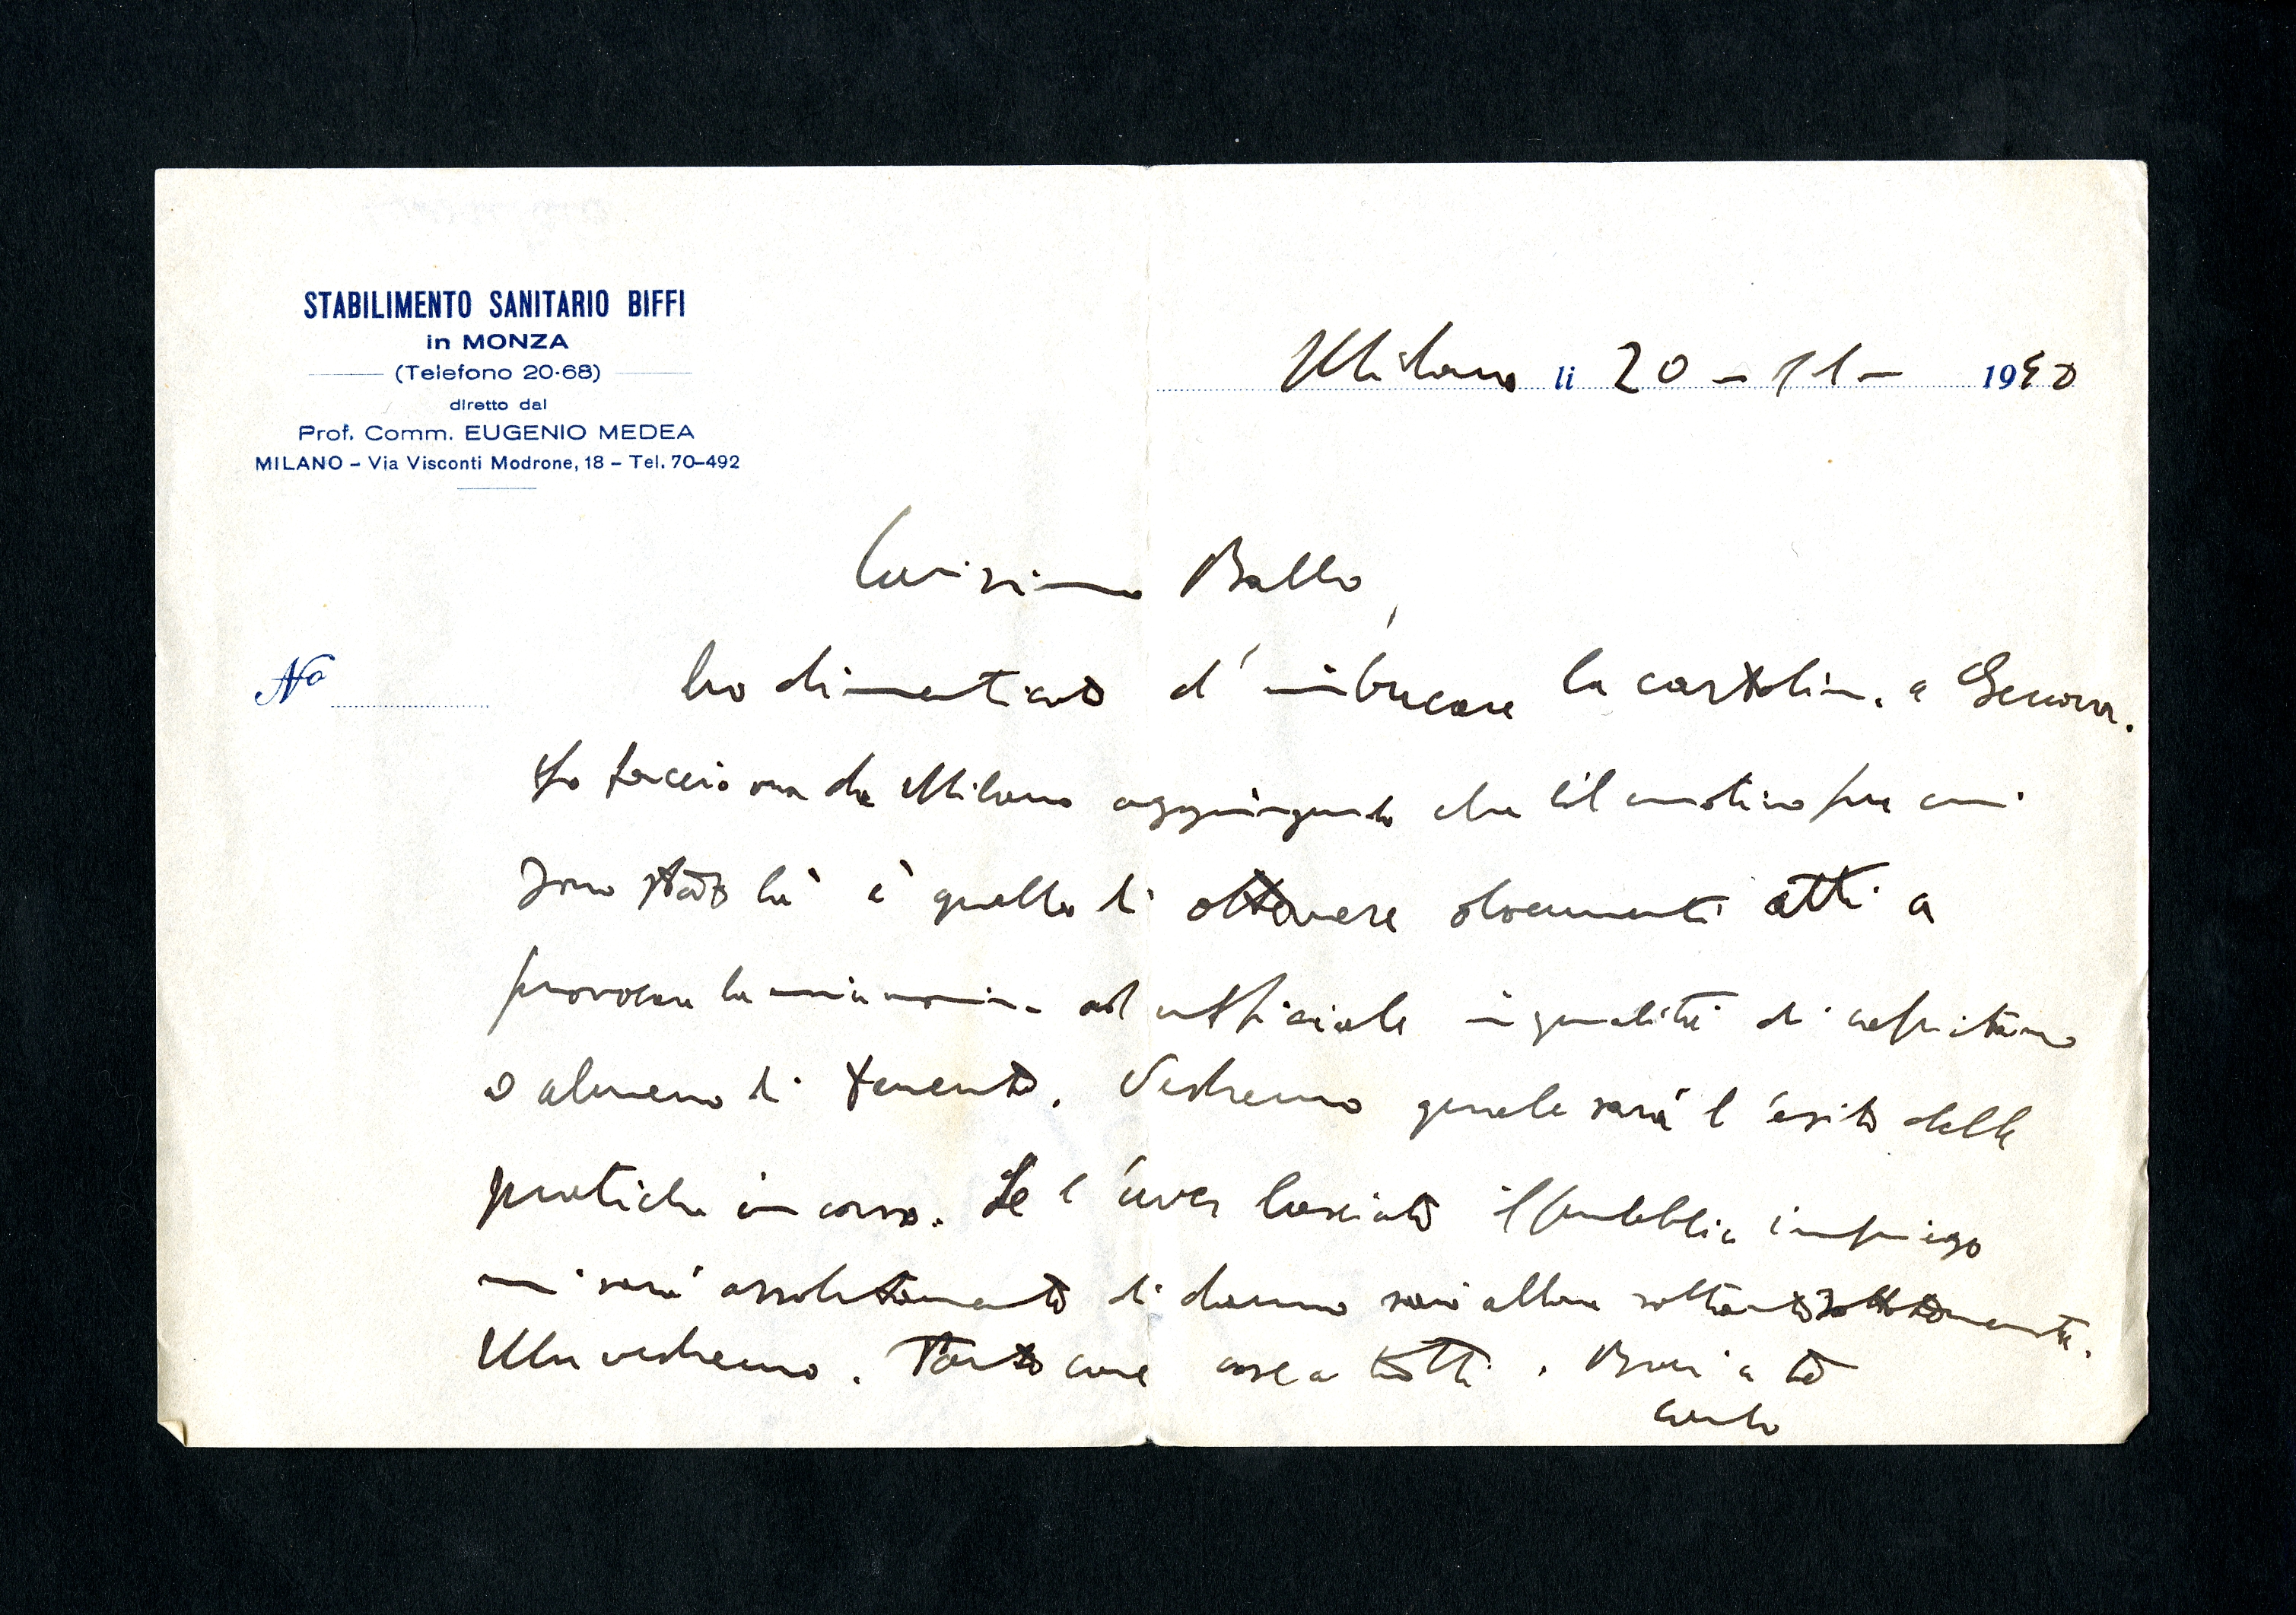 STABILIMENTO SANITARIO BIFFI
in MONZA
(Telefono 20-68)
diretto dal
Prof. Comm. EUGENIO MEDEA
MILANO - Via Visconti Modrone, 18 - Tel. 70-492
Milano li 20 - 11 - 1940
Carissimo Ballo,
No
ho dimenticato d'imbucare la cartolina a Genova.
Lo faccio ora da Milano aggiungendo che il motivo per cui
sono stato là è quello di ottenere documenti atti a
provocare la mia nomina ad ufficiale in qualità di capitano
o almeno di tenente. Vedremo quale sarà l'esito delle
pratiche in corso. Se l'aver lasciato il pubblico impiego
mi sarà assolutamente di danno sarò allora soltanto sottotenente.
Ma vedremo. Tante care cose a tutti. Baci a te
Carlo